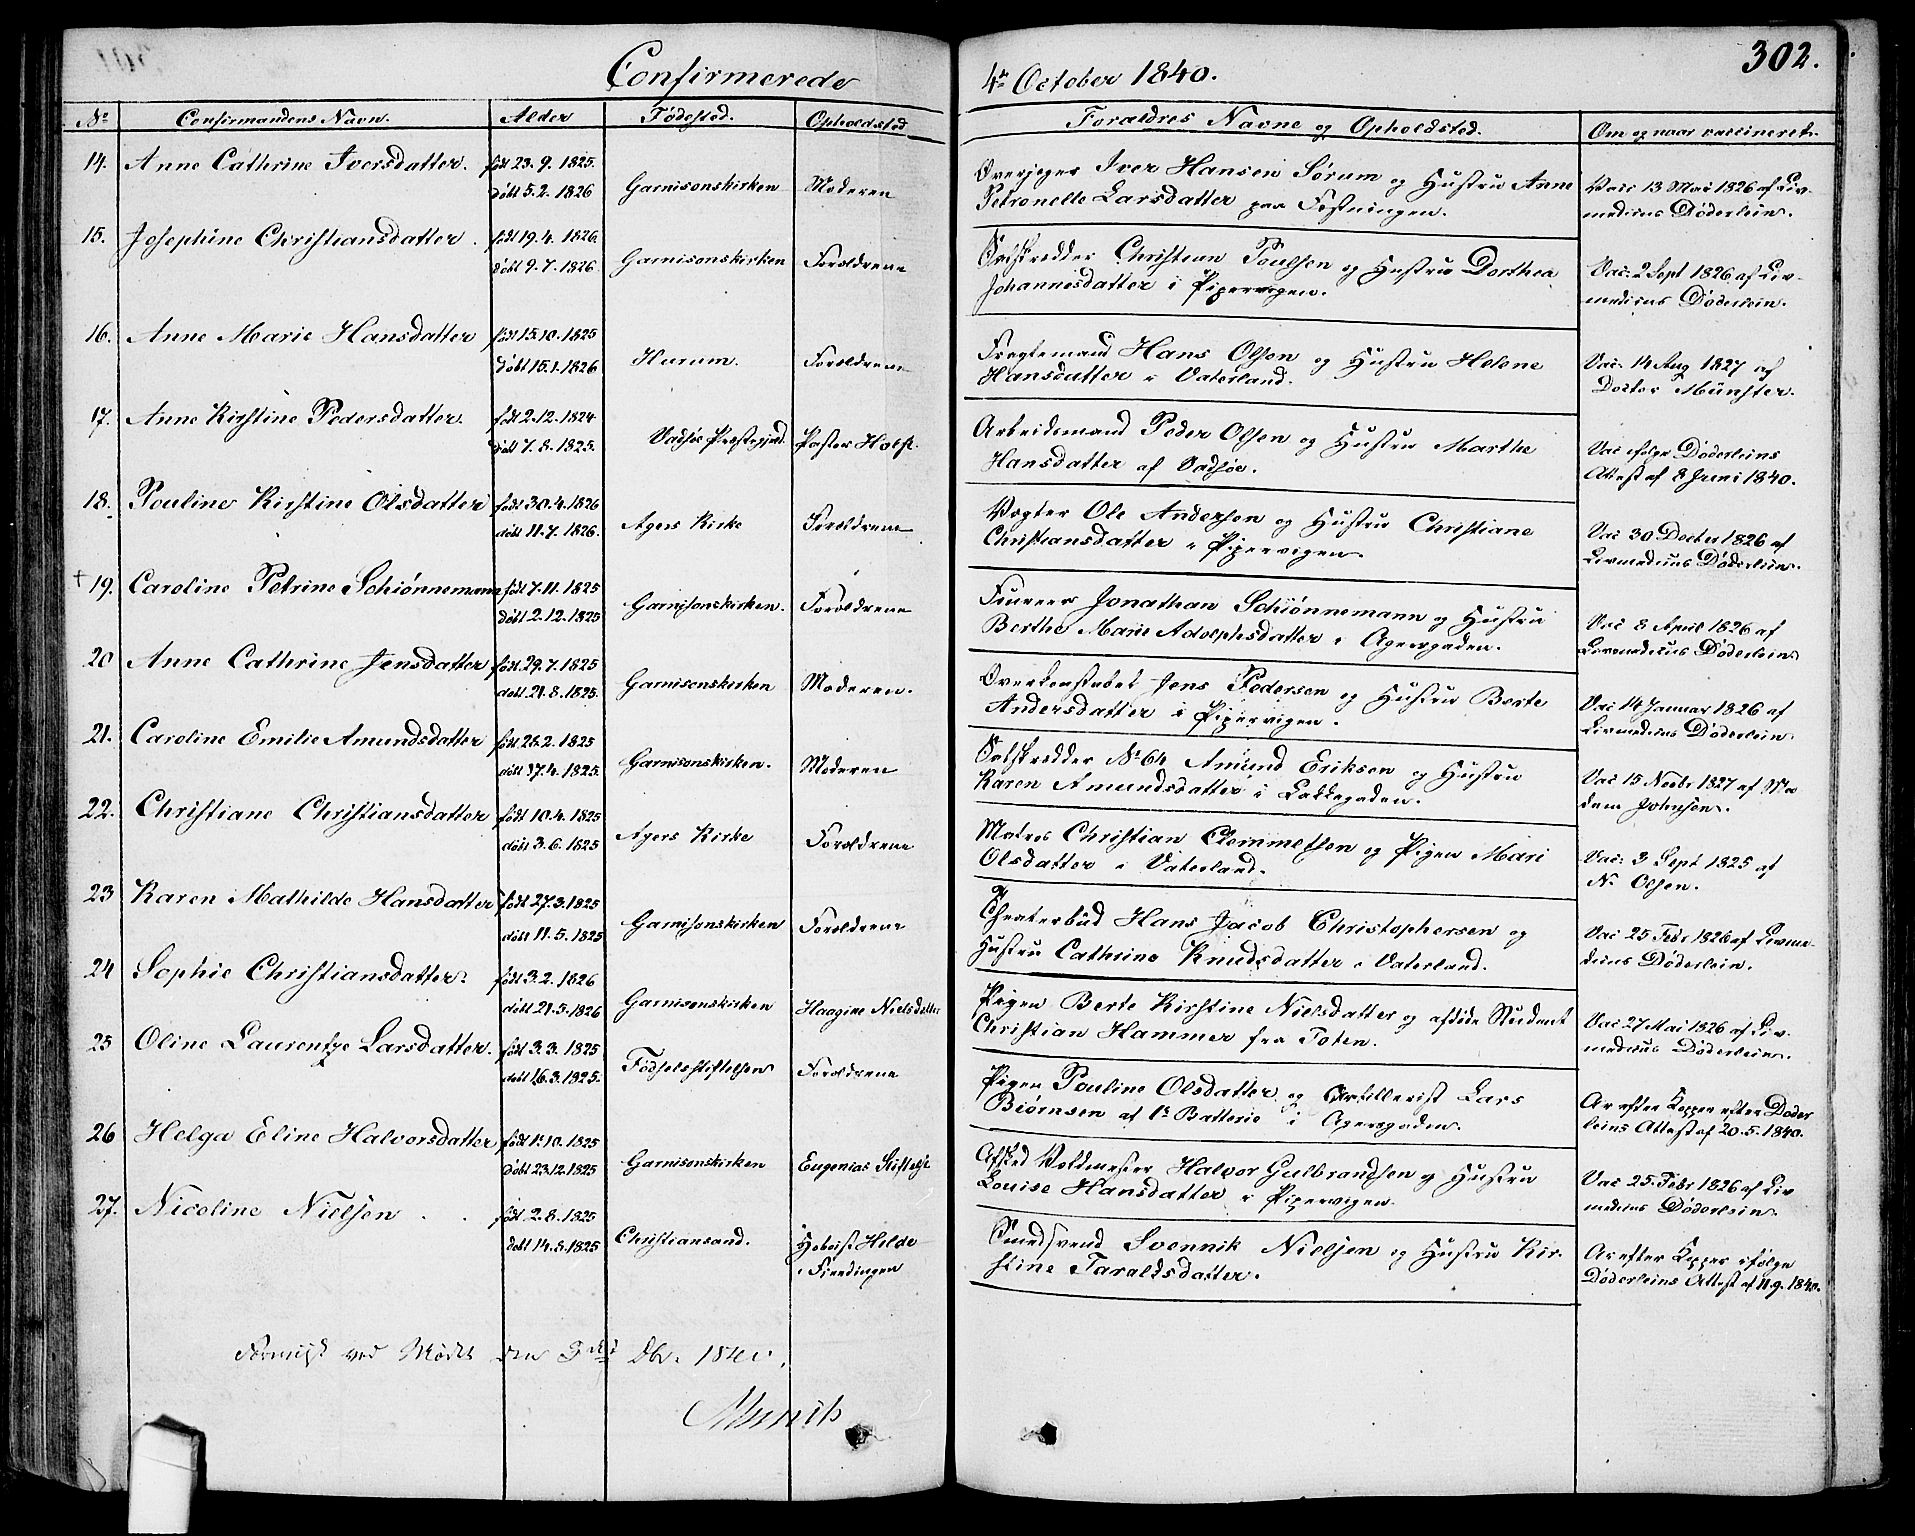 302.
Confirmerede 4de October 1840.
No Confirmandens Navn. Alder Fødested. Opholdsted Forældres Navne og Opholdsted. Om og naar vaccineret.
14. Anne Cathrine Iversdatter. født 23. 9. 1825. døbt 5. 2. 1826 Garnisonskirken Moderen
Overjeger Iver Hansen Sørum og Hustru Anne
Petronelle Larsdatter paa Fæstningen.
Vac 13 Mai 1826 af Liv-
medicus Døderlein.
15. Josephine Christiansdatter. født 19. 4. 1826. døbt 9. 7. 1826 Garnisonskirken Forældrene
Christian Poulsen og Hustru Dorthea
Johannisdatter i Pipervigen.
Vac. 2 Sept 1826 af Liv-
medicus Døderlein.
16. Anne Marie Hansdatter født 15. 10. 1825 døbt 15. 1. 1826 Hurum. Forældrene
Fragtemand Hans Olsen og Hustru Helene
Hansdatter i Vaterland.
Vac. 14 Aug 1827 af
Doctor Münster.
17. Anne Kirstine Pedersdatter. født 2. 12. 1824 døbt 7. 8. 1825. Vadsøe Præstegjæld. Pastor Holst.
Arbeidsmand Peder Olsen og Hustru Marthe
Hansdatter af Vadsøe.
Vac ifølge Døderleins
Attest af 8 Juni 1840.
18. Pouline Kirstine Olsdatter født 30. 4. 1826 døbt 11. 7. 1826. Agers Kirke Forældrene
Vægter Ole Andersen og Hustru Christiane
Christiansdatter i Pipervigen.
Vac 30 Decbr 1826 af
Livmedicus Døderlein.
+ 19. Caroline Petrine Schiønnemann født 7. 11. 1825 døbt 2. 12. 1825 Garnisonskirken. Forældrene
Foureer Jonathan Schiønnemann og Hustru
Berthe Marie Adolphsdatter i Agersgaden.
Vac 8 April 1826 af
Livmedicus Døderlein
20 Anne Cathrine Jensdatter født 29. 7. 1825 døbt 21. 8. 1825. Garnisonskirken Moderen.
Overkonstabel Jens Pedersen og Hustru Berte
Andersdatter i Pipervigen.
Vac 14 Januar 1826 af
Livmedicus Døderlein.
21. Caroline Emilie Amundsdatter født 26. 2. 1825 døbt 17. 4. 1825. Garnisonskirken. Moderen
No 64 Amund Eriksen og Hustru
Karen Amundsdatter i Lakkegaden.
Vac 15 Novbr 1827 af Ma
dam Johnsen.
22. Christiane Christiansdatter født 10. 4. 1825 døbt 3. 6. 1825 Agers Kirke Forældrene
Matros Christian Clemmetsen og Pigen Mari
Olsdatter i Vaterland.
Vac: 3 Sept 1825 af
N. Olsen.
23 Karen Mathilde Hansdatter født 27. 3. 1825 døbt 11. 5. 1825 Garnisonskirken Forældrene
Theaterbud Hans Jacob Christophersen og
Hustru Cathrine Knudsdatter i Vaterland.
Vac 25 Febr 1826 af Livme-
dicus Døderlein.
24 Sophie Christiansdatter. født 3. 2. 1826 døbt 21. 5. 1826 Garnisonskirken Haagine Nielsdatter
Pigen Berte Kirstine Nielsdatter og afdøde Student
Christian Hammer fra Toten.
Vac 27 Mai 1826 af Liv-
medicus Døderlein.
25 Oline Laurentze Larsdatter. født 3. 3. 1825 døbt 16. 3. 1825. Fødselsstiftelsen Forældrene
Pigen Pouline Olsdatter og Artillerist Lars
Biørnsen af 1s Batterie i Agersgaden.
Ar efter Kopper efter Døder
leins Attest af 20. 5. 1840.
26 Helga Eline Halvorsdatter født 1. 10. 1825 døbt 23. 12. 1825 Garnisonskirken Eugenias Stiftelse
Afsked Voldmester Halvor Gulbrandsen og Hustru
Louise Hansdatter i Pipervigen.
Vac 25 Febr 1826 af Liv
medicus Døderlein.
27. Nicoline Nielsen født 2. 8. 1825 døbt 14. 8. 1825 Christiansand. Hoboist Hilde
i Fierdingen
Smedsvend Svennik Nielsen og Hustru Kir-
stine Taraldsdatter.
Ar efter Kopper ifølge
Døderleins Attest af 11. 9. 1840.
ved Mødet den 3die Dbr. 1840.
Munch